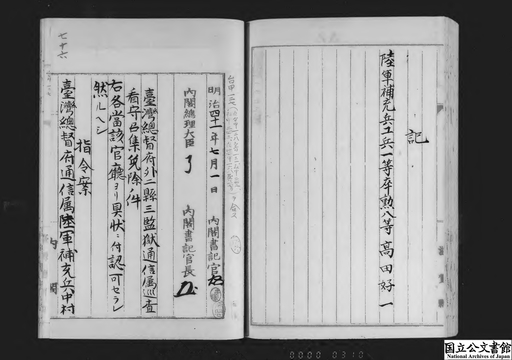 記
陸軍補充兵工兵一等卒勲八等高田好一
七十六
明治四十一年七月一日
内閣書記官
内閣總理大臣
内閣書記官長
臺灣總督府外二縣三監獄通信属巡査
看守召集免除ノ件
右各當該官廳ヨリ具状ニ付認可セラレ
然ルヘシ
指令案
臺灣總督府通信属陸軍補充兵中村
内閣
0000 0310
国立公文書館
National Archives of Japan